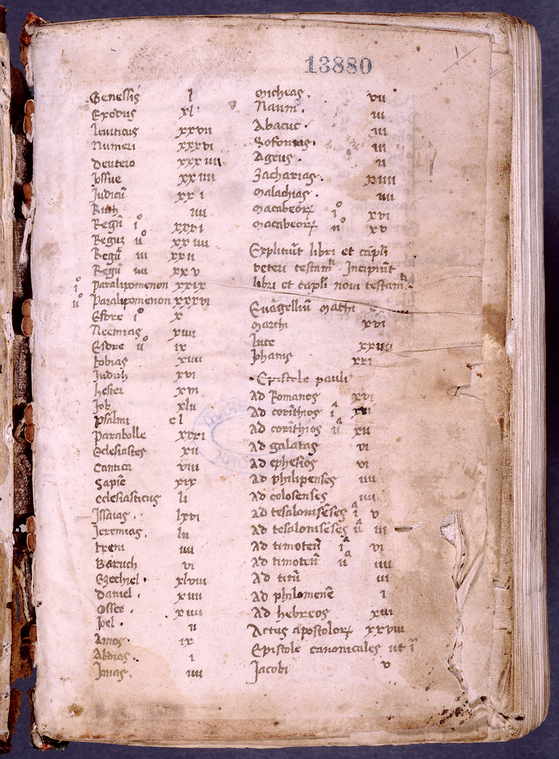 13880
Genesis l
Exodus xl
leuiticus xxvii
Numeri xxxvi
deutero xxxiiii
Josue xxiiii
Judicū xxi
Ruth iiii
Regū i° xxxi
Regū ii° xxiiii
Regū iii xxii
Regū iiii xxv
i° Paralipomenon xxix
ii° Paralipomenon xxxvi
Esdre i° x
Neemias xiii
Esdre ii° ix
tobias xiiii
Judith xvi
hester xvi
Job xlii
psalmi cl
Parabolle xxxi
Eclesiastes xii
Cantica viii
Sapiē xix
eclesiasticus li
Issaias. lxvi
Jeremias. lii
treni iiii
Baruch vi
Ezechel. xlviii
daniel. xiiii
Ossee. xiiii
Joel. ii
Amos. ix
Abdias. i
Jonas. iiii
Micheas. vii
Naum. iii
Abacuc. iii
Sofonias. iii
Ageus. ii
Zacharias. xiiii
Malachias. iii
Macabeoꝝ i° xvi
Macabeoꝝ ii° xv
Expliciūt libri et capli
veteri testamᵗⁱ. Incipiūt
libri et capli noui testamᵗⁱ.
Euāgelliū mathi
Marchi xvi
luce xxiiii
Johanis xxi
Epistole pauli
Ad Romanos xvi
Ad corithios i° xvi
Ad corithios ii° xii
Ad galatas vi
Ad ephesios vi
Ad philipenses iiii
Ad colosenses iiii
Ad tesaloniseses i° v
Ad tesaloniseses ii° iii
Ad timoteū i° vi
Ad timoteū ii° iiii
Ad titū iii
Ad philomenē i
Ad hebreos xiii
Actus apostoloꝝ xxviii
Epistole canonicales ut i°
Jacobi v